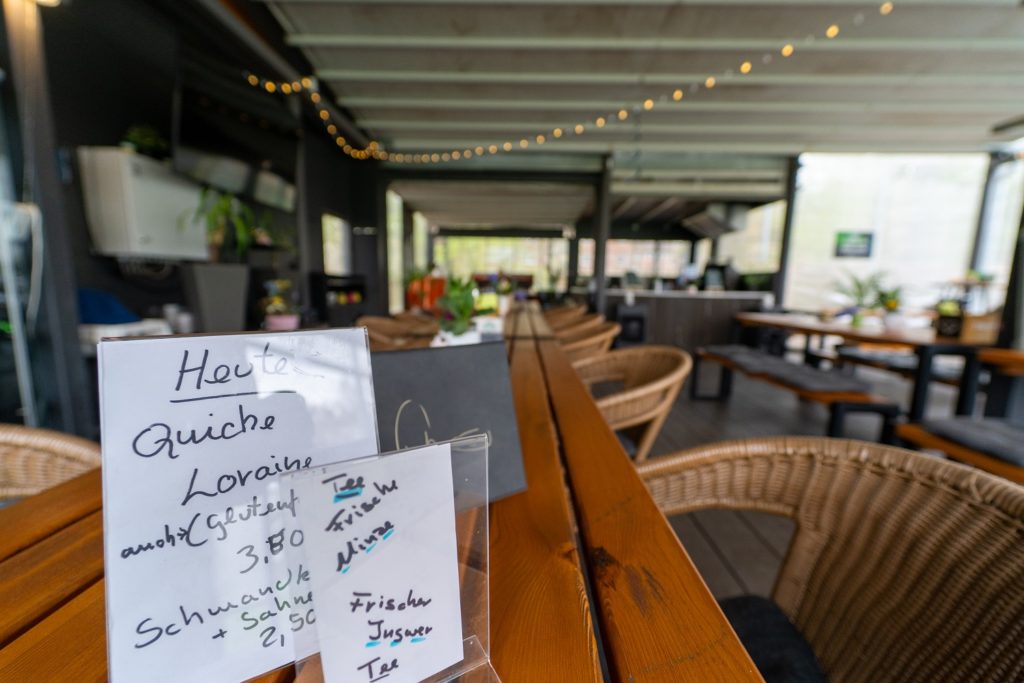 Heute
Quiche
Loraine
auch (glutenf
3,80
Schmandk
+ Sahne
2,50
Tee
Frische
Minze
Frischer
Ingwer
Tee